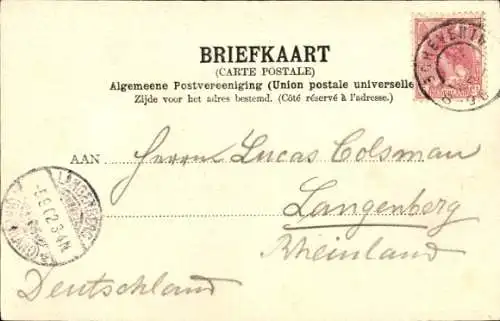 BRIEFKAART
(CARTE POSTALE)
Algemeene Postvereeniging (Union postale universelle
Zijde voor het adres bestemd. (Côté réservé à l'adresse.)
AAN Herrn Lucas Colsman
Langenberg
Rheinland
Deutschland
SCHEVENIN
LANGENBERG
5.9.02.3-4N